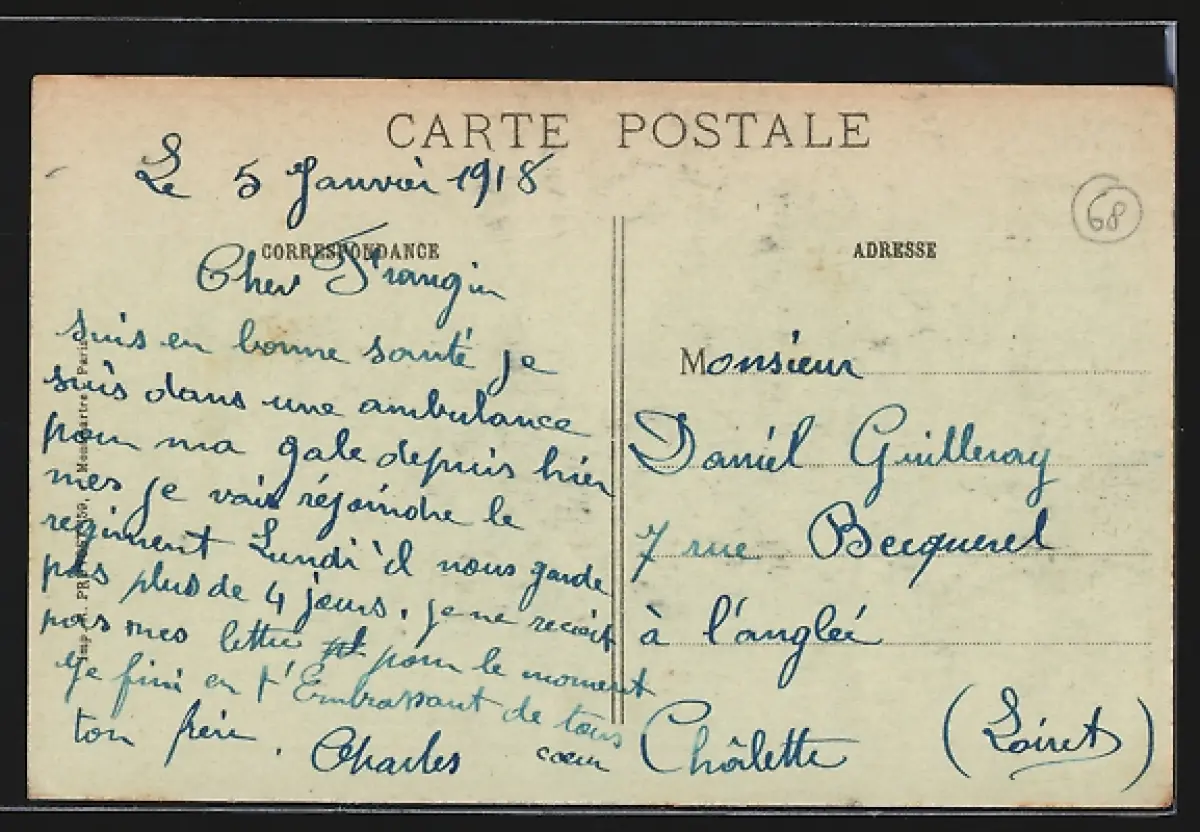 CARTE POSTALE
Le 5 Janvier 1918
68
CORRESPONDANCE
ADRESSE
Cher Frangin
suis en bonne santé je
suis dans une ambulance
pour ma gale depuis hier
mes je vais réjoindre le
regiment Lundi il nous garde
pas plus de 4 jours. je ne recoit
pas mes lettre pour le moment
Je fini en t'Embrassant de tous
coeur
ton frère. Charles
Monsieur
Daniel Guilleray
7 rue Becquerel
à l'anglée
Châlette (Loiret)